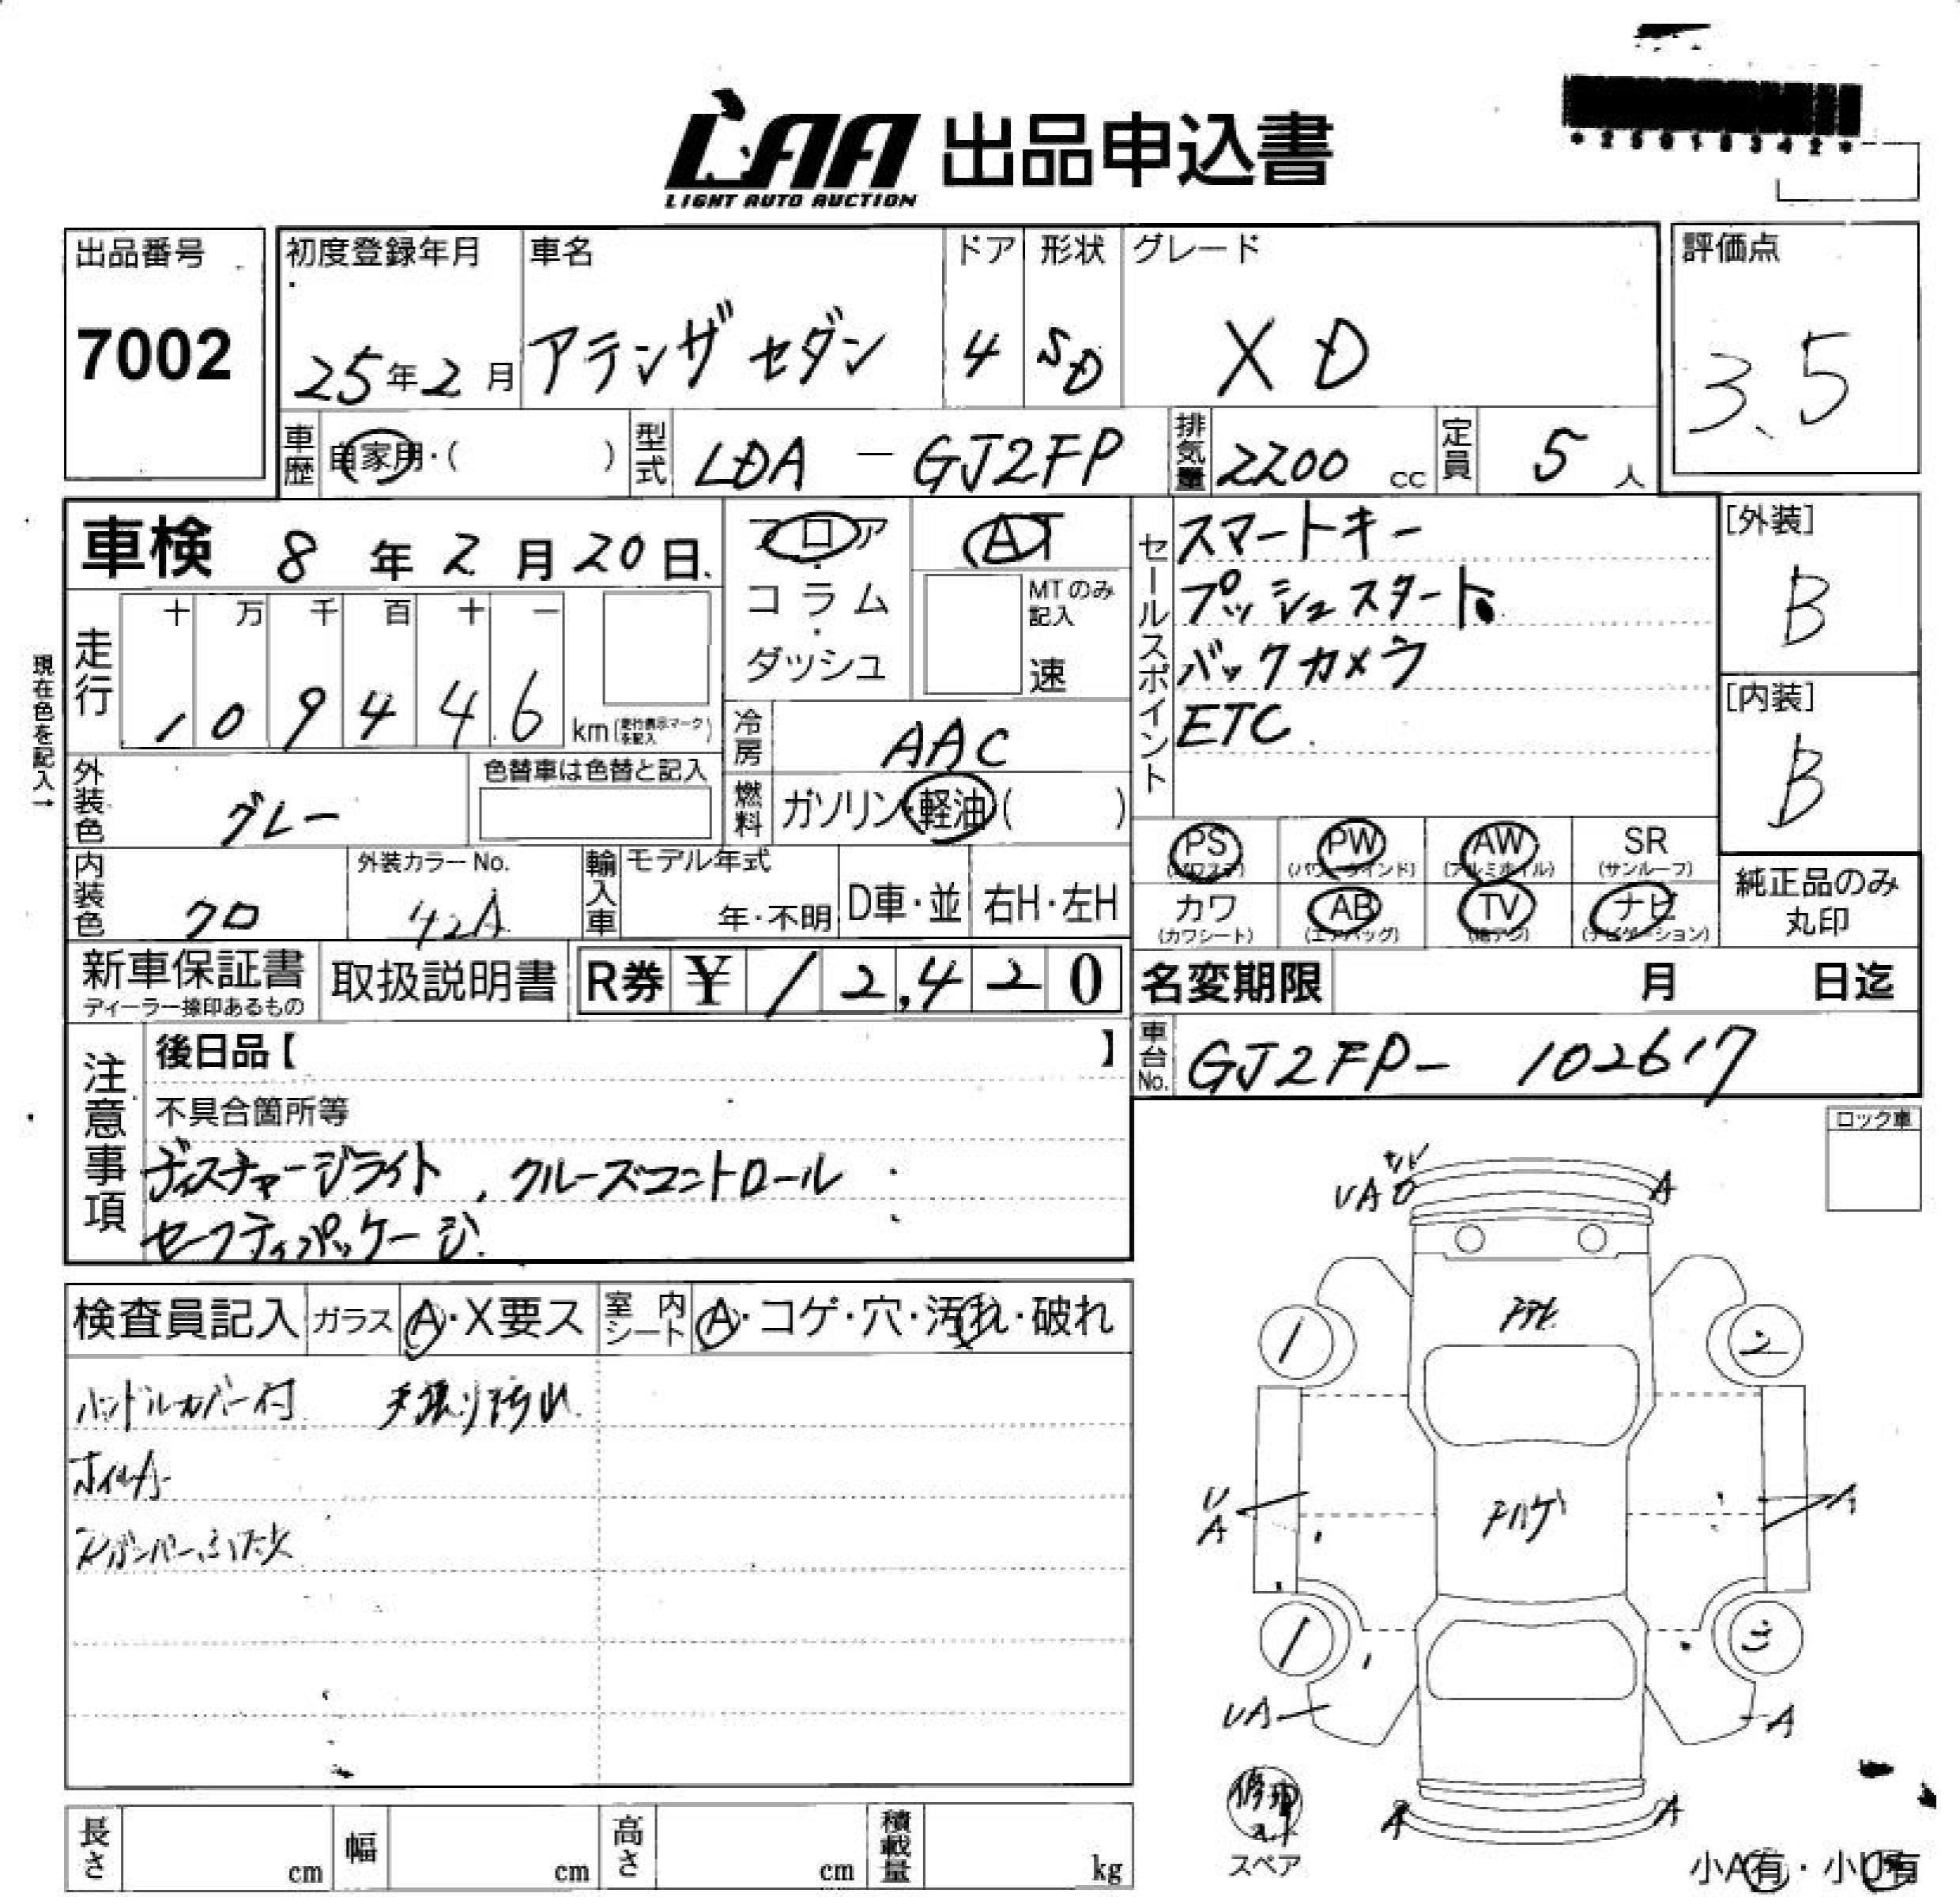 *25018342*
LAA 出品申込書
LIGHT AUTO AUCTION
出品番号 7002
初度登録年月 25年2月
車名 アテンザセダン
ドア 4
形状 SD
グレード XD
評価点 3.5
車歴 自家用・( )
型式 LDA - GJ2FP
排気量 2200 cc
定員 5人
車検 8年2月20日
フロア・コラム・ダッシュ
AT
MTのみ記入 速
セールスポイント
スマートキー
プッシュスタート
バックカメラ
ETC
[外装] B
[内装] B
現在色を記入→
走行 十万千百十一
109446 km (走行表示マークを記入)
冷房 AAC
外装色 グレー
色替車は色替と記入
燃料 ガソリン・軽油( )
PS (パワステ) PW (パワーウインド) AW (アルミホイル) SR (サンルーフ)
カワ (カワシート) AB (エアバッグ) TV (地デジ) ナビ (ナビゲーション)
純正品のみ丸印
内装色 クロ
外装カラーNo. 42A
輸入車 モデル年式 年・不明 D車・並 右H・左H
新車保証書 ディーラー捺印あるもの
取扱説明書
R券 ¥12,420
名変期限 月 日迄
車台No. GJ2FP- 102617
注意事項
後日品【 】
不具合箇所等
ディスチャージライト、クルーズコントロール
セーフティパッケージ
ロック車
検査員記入 ガラス A・X要ス 室内シート A・コゲ・穴・汚れ・破れ
ハンドルカバー付 天張り汚れ
ホイルA
UA A
1 2
U
A A
1
UA A
A A
スペア
小A有・小U有
長さ cm 幅 cm 高さ cm 積載量 kg